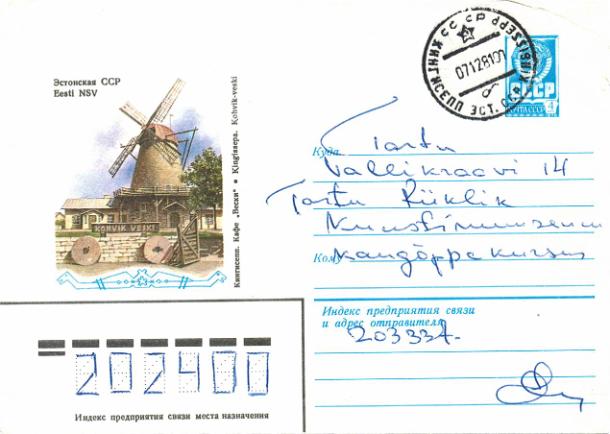 Эстонская ССР
Eesti NSV
KOHVIK VESKI
Кингисепп. Кафе „Вески“ • Kingissepa. Kohvik-veski
07128109
КИНГИСЕПП ЭСТ. ССР
СССР
ПОЧТА СССР 4
Куда
Tartu
Vallikraavi 14
Tartu Riiklik
Kunstimuuseum
Кому
Индекс предприятия связи
и адрес отправителя
203334
202400
Индекс предприятия связи места назначения